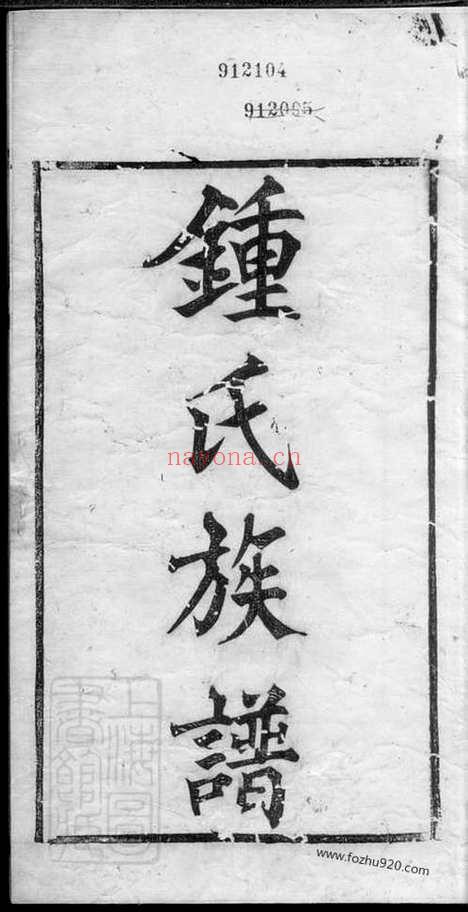 912104
912095
鍾氏族譜
nayona.cn
www.fozhu920.com